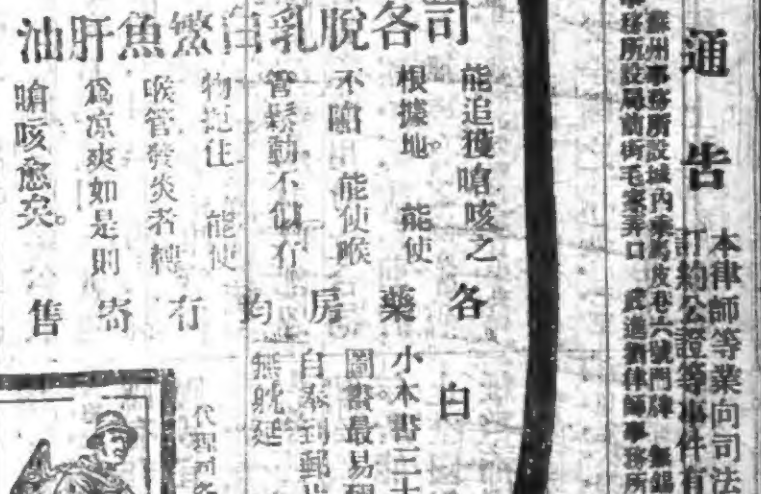 通告
本律師等業向司法
訂約公證等事件有
蘇州事務所設城內乘馬皮巷六號門牌 無錫
事務所設局前街毛家弄口 律師事務所
司各脫乳白鰵魚肝油
能追獲嗆咳之
根據地。能使
不嗆 能使喉
管鬆動不似有
物扼住 能使
喉管發炎者轉
爲凉爽如是則
嗆咳愈矣。
各藥房均有寄售
白
小本書三十
圖書最易
白泰到郵片
無躭延
代理司各